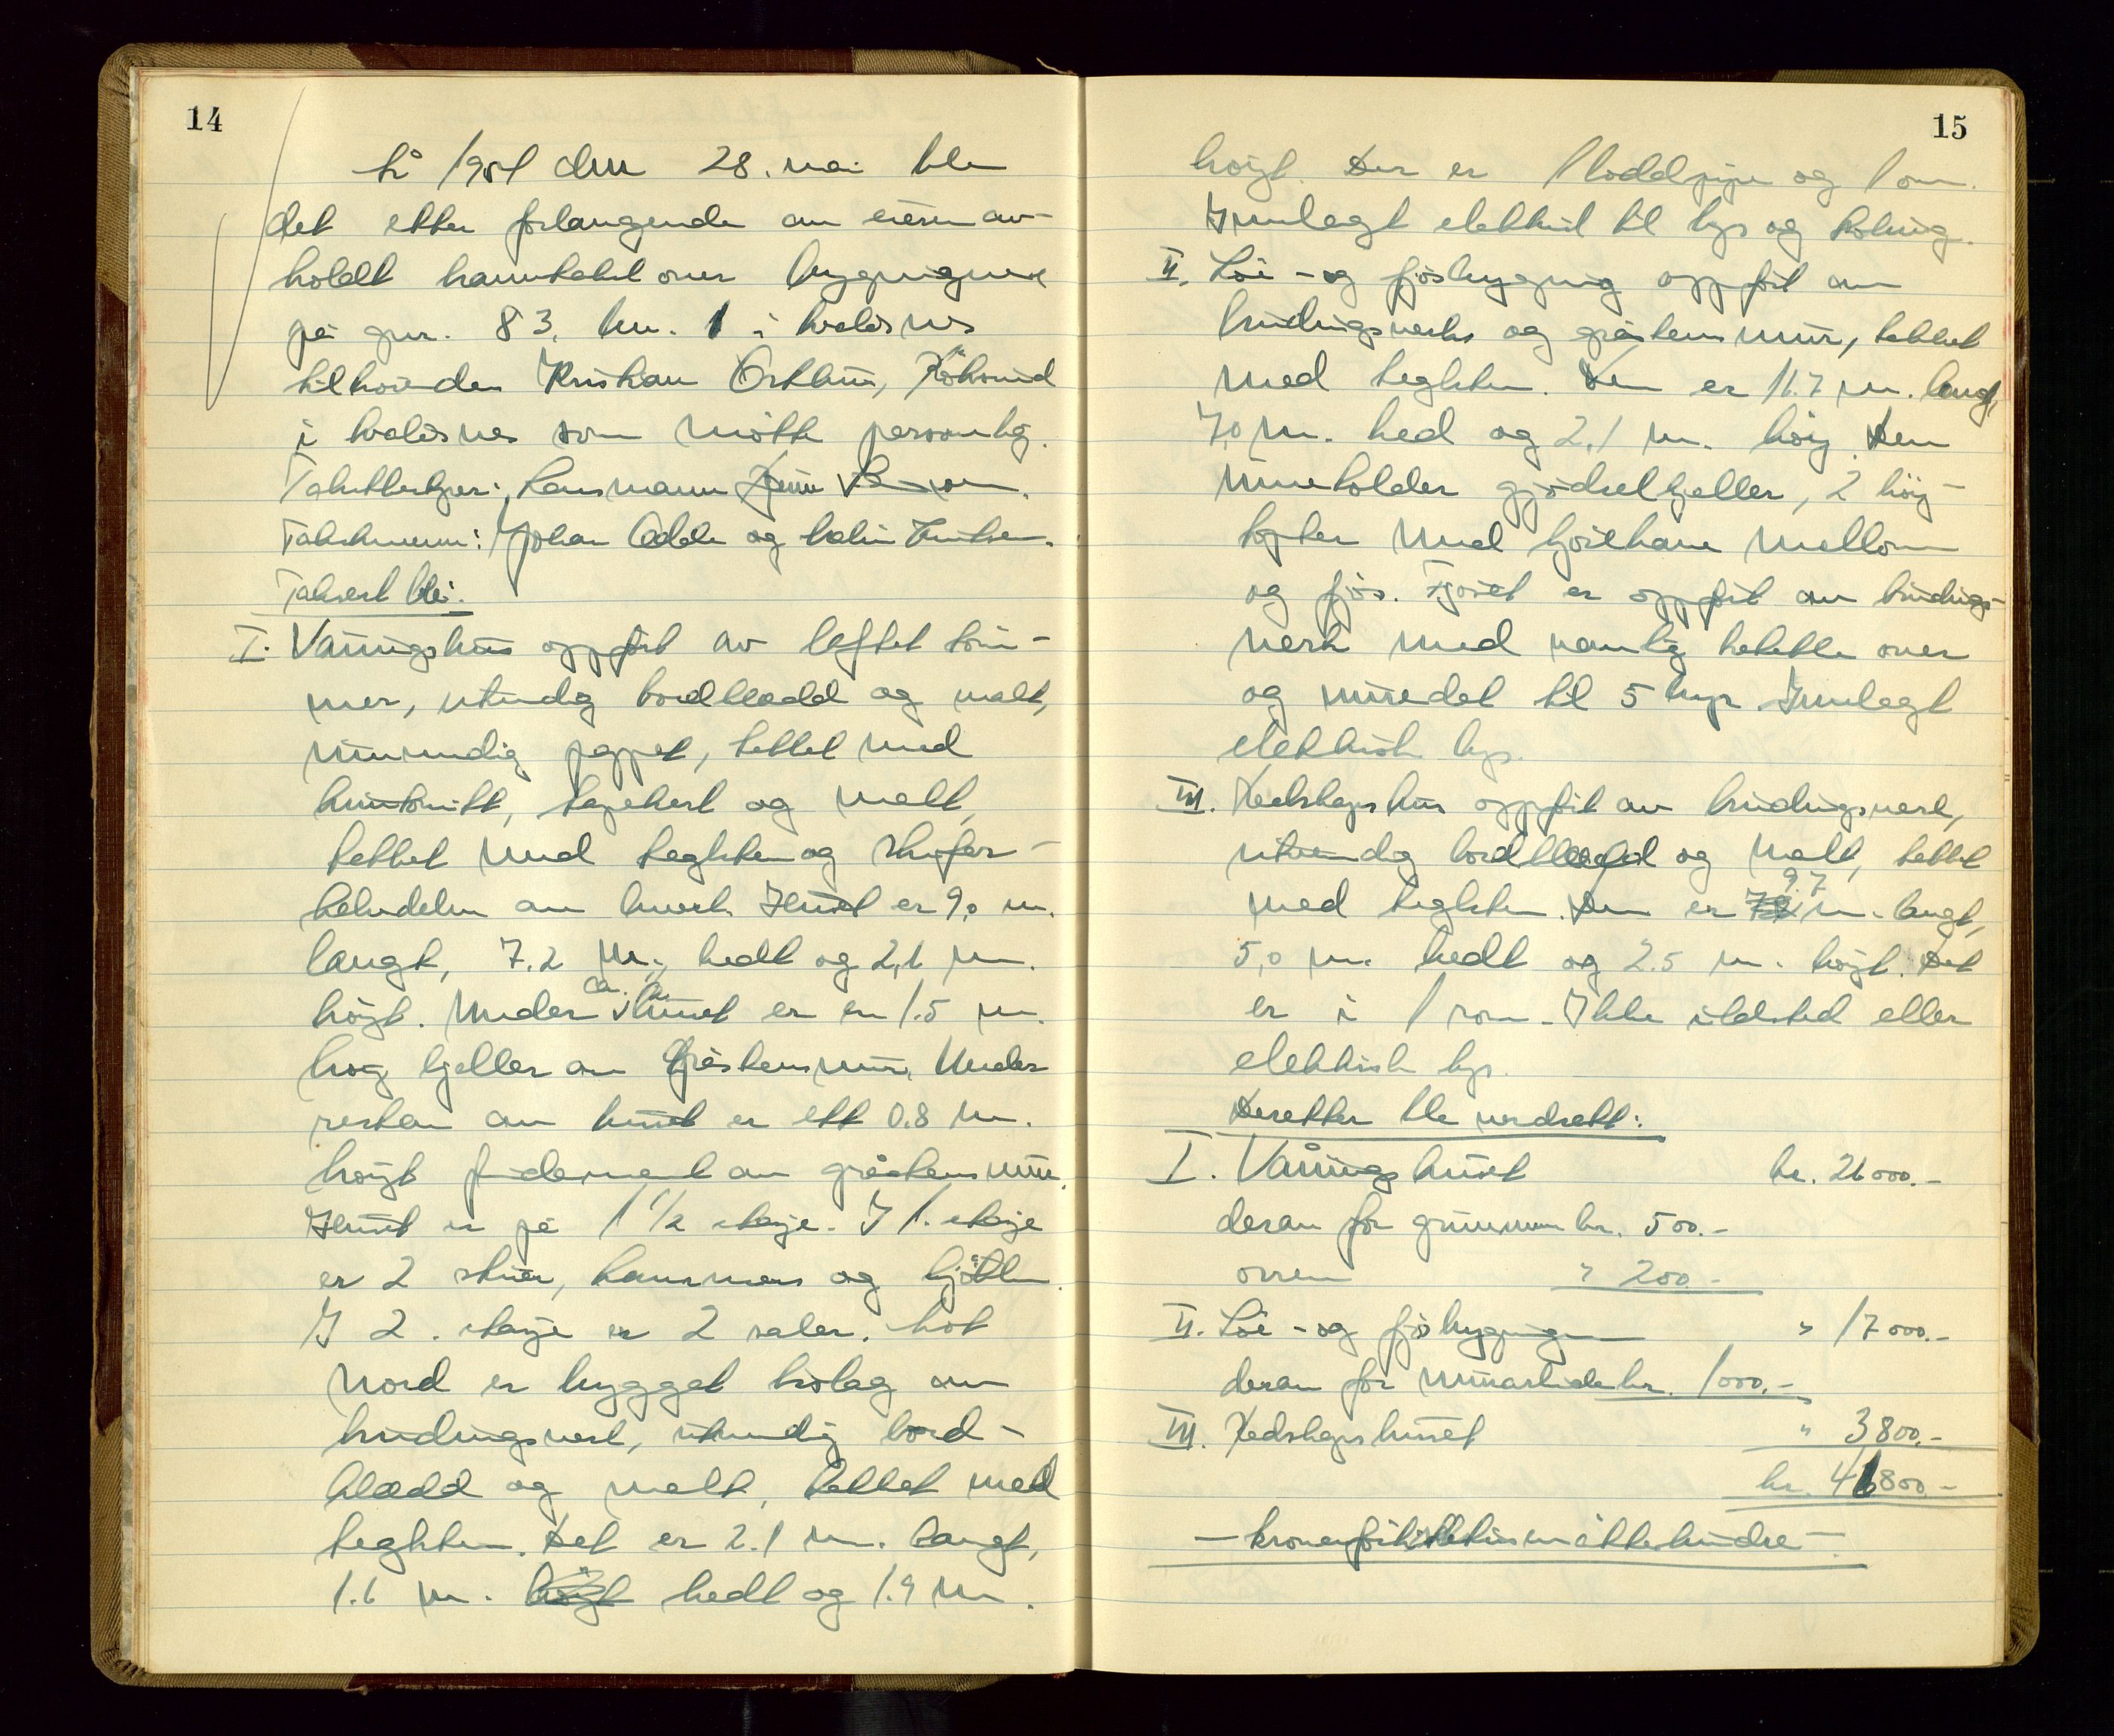 14
År 1951 den 28. mai ble
det etter forlangende av eieren av-
holdt branntakst over bygningene
på gnr. 83, bnr. 1 i
tilhørende Kristian
i som møtte personlig.
Takstbestyrer: Lensmann
Takstmenn: Johan og
Taksert ble:
I. Våningshus oppført av laftet tøm-
mer, utvendig bordkledd og malt,
innvendig pappet, tettet med
huntonitt, tapetsert og malt,
tekket med teglsten og skifer -
halvdelen av hvert. Huset er 9,0 m.
langt, 7.2 m. bredt og 2,1 m.
høgt. Under ca. ½ huset er en 1.5 m.
høg kjeller av gråstensmur. Under
resten av huset er ett 0.8 m.
høgt fundament av gråstensmur.
Huset er på 1 1/2 etasje. I 1. etasje
er 2 stuer, kammers og kjøkken.
I 2. etasje er 2 saler. Mot
nord er bygget bislag av
bindingsverk, utvendig bord-
kledd og malt, tekket med
teglsten. Det er 2.1 m. langt,
1.6 m. høgt bredt og 1.9 m.
15
høgt. Der er 1 loddpipe og 1 ovn.
Innlagt elektrisk til lys og koking.
II. Løe- og fjøsbygning oppført av
bindingsverk og gråstensmur, tekket
med teglsten. Den er 11.7 m. lang,
7,0 m. bred og 2.1 m. høg. Den
inneholder gjødselkjeller, 2 høy-
topter med kjørebane mellom
og fjøs. Fjøset er oppført av bindings-
verk med vanlig over
og innredet til 5 kyr. Innlagt
elektrisk lys.
III. Redskapshus oppført av bindingsverk,
utvendig bordkledd og malt, tekket
med teglsten. Den er 9.7 m. langt,
5,0 m. bredt og 2.5 m. høgt. Det
er i 1 rom. Ikke ildsted eller
elektrisk lys.
Deretter ble verdsatt:
I. Våningshuset kr. 26000.-
derav for grunnmur kr. 500.-
ovnen " 200.-
II. Løe- og fjøsbygningen " 17000.-
derav for murarbeide kr. 1000.-
III. Redskapshuset " 3800.-
kr. 46800.-
- kroner førtisekstusen åttehundre -